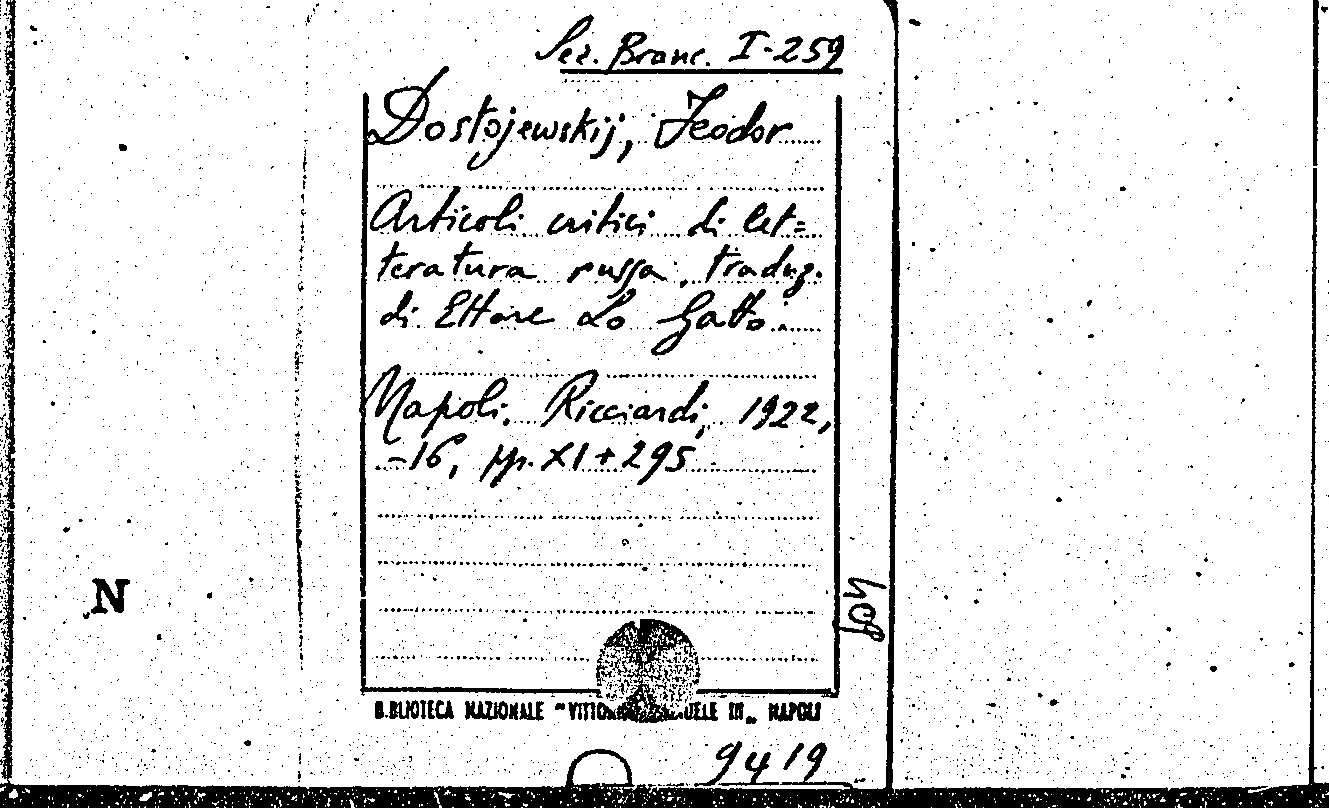 Sez. Branc. I-259
Dostojewskij, Feodor
Articoli critici di let=
teratura russa, traduz.
di Ettore Lo Gatto.
Napoli. Ricciardi, 1922,
-16, pp. XI+295
N
BIBLIOTECA NAZIONALE "VITTORIO EMANUELE III" NAPOLI
9419